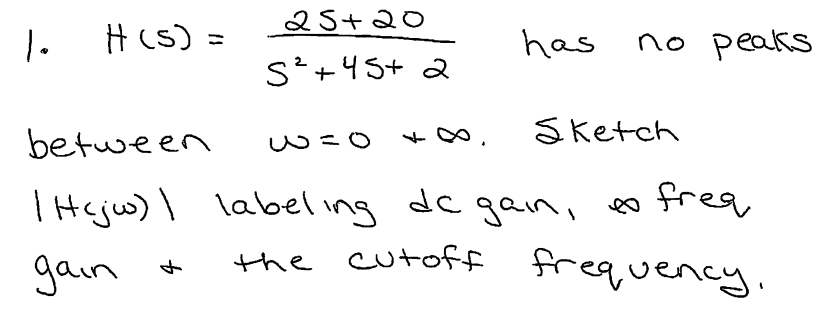 1. H(s) = (2s+20)/(s²+4s+2) has no peaks
between ω=0 + ∞. Sketch
|H(jω)| labeling dc gain, ∞ freq
gain + the cutoff frequency.